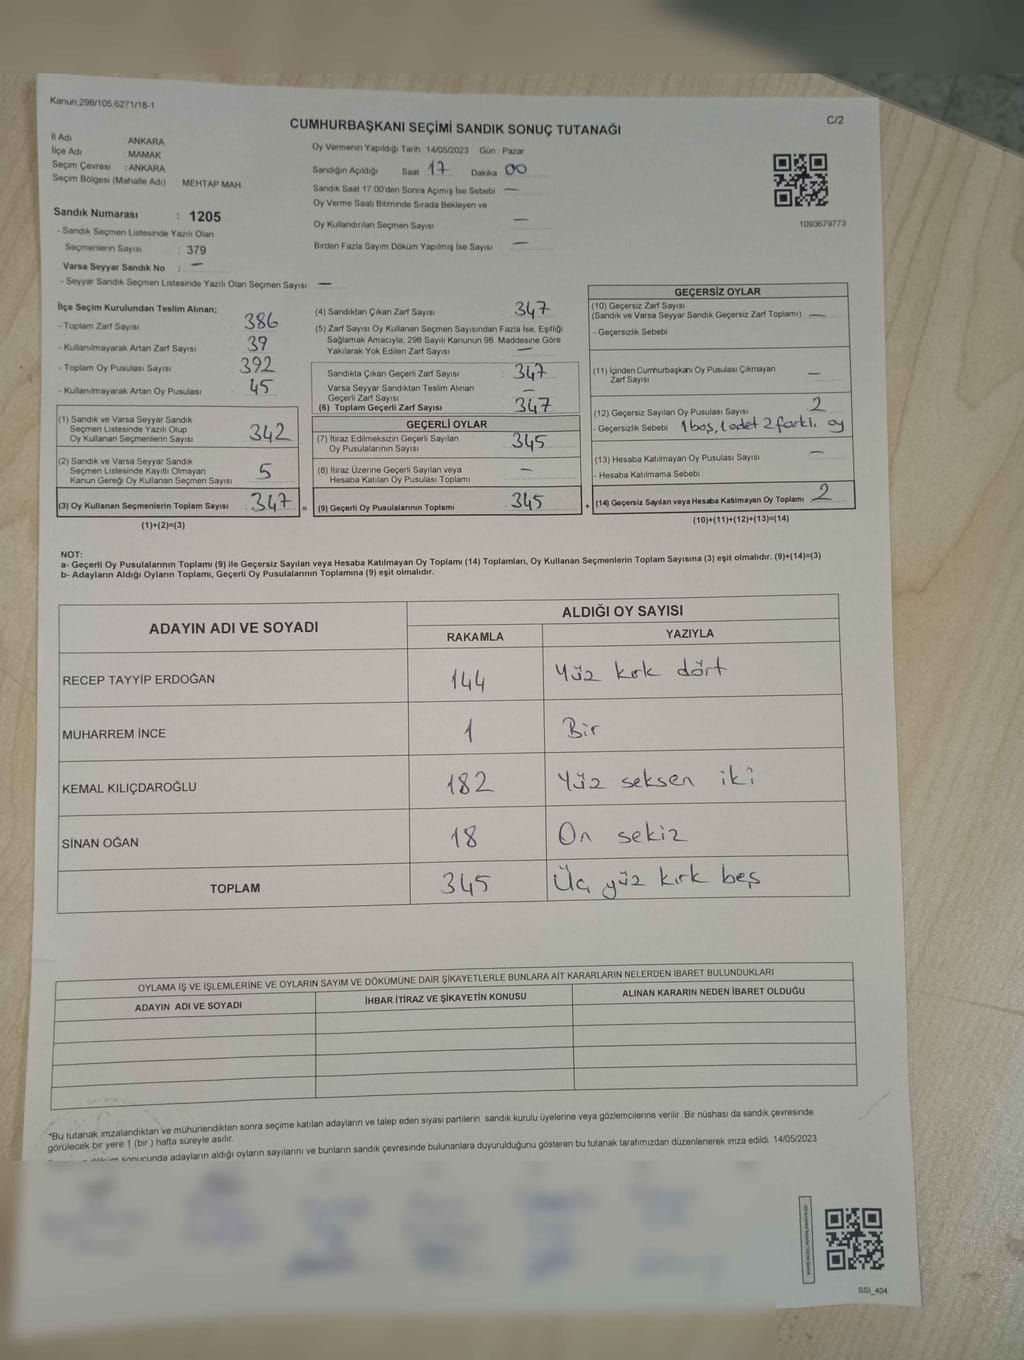 Kanun:298/105,6271/18-1
C/2
CUMHURBAŞKANI SEÇİMİ SANDIK SONUÇ TUTANAĞI
İl Adı ANKARA
İlçe Adı MAMAK
Seçim Çevresi : ANKARA
Seçim Bölgesi (Mahalle Adı) : MEHTAP MAH
Sandık Numarası : 1205
- Sandık Seçmen Listesinde Yazılı Olan
Seçmenlerin Sayısı : 379
Varsa Seyyar Sandık No : —
- Seyyar Sandık Seçmen Listesinde Yazılı Olan Seçmen Sayısı: —
Oy Vermenin Yapıldığı Tarih : 14/05/2023 Gün : Pazar
Sandığın Açıldığı Saat 17 Dakika 00
Sandık Saat 17.00'den Sonra Açımış İse Sebebi : —
Oy Verme Saati Bitiminde Sırada Bekleyen ve
Oy Kullandırılan Seçmen Sayısı —
Birden Fazla Sayım Döküm Yapılmış İse Sayısı —
1093679773
İlçe Seçim Kurulundan Teslim Alınan;
- Toplam Zarf Sayısı : 386
- Kullanılmayarak Artan Zarf Sayısı : 39
- Toplam Oy Pusulası Sayısı : 392
- Kullanılmayarak Artan Oy Pusulası : 45
(1) Sandık ve Varsa Seyyar Sandık
Seçmen Listesinde Yazılı Olup
Oy Kullanan Seçmenlerin Sayısı : 342
(2) Sandık ve Varsa Seyyar Sandık
Seçmen Listesinde Kayıtlı Olmayan
Kanun Gereği Oy Kullanan Seçmen Sayısı : 5
(3) Oy Kullanan Seçmenlerin Toplam Sayısı : 347 =
(1)+(2)=(3)
(4) Sandıktan Çıkan Zarf Sayısı : 347
(5) Zarf Sayısı Oy Kullanan Seçmen Sayısından Fazla İse, Eşitliği
Sağlamak Amacıyla, 298 Sayılı Kanunun 98. Maddesine Göre
Yakılarak Yok Edilen Zarf Sayısı : —
Sandıkta Çıkan Geçerli Zarf Sayısı : 347
Varsa Seyyar Sandıktan Teslim Alınan
Geçerli Zarf Sayısı : —
(6) Toplam Geçerli Zarf Sayısı : 347
GEÇERLİ OYLAR
(7) İtiraz Edilmeksizin Geçerli Sayılan
Oy Pusulalarının Sayısı : 345
(8) İtiraz Üzerine Geçerli Sayılan veya
Hesaba Katılan Oy Pusulası Toplamı : —
(9) Geçerli Oy Pusulalarının Toplamı : 345 +
GEÇERSİZ OYLAR
(10) Geçersiz Zarf Sayısı
(Sandık ve Varsa Seyyar Sandık Geçersiz Zarf Toplamı) : —
- Geçersizlik Sebebi :
(11) İçinden Cumhurbaşkanı Oy Pusulası Çıkmayan
Zarf Sayısı : —
(12) Geçersiz Sayılan Oy Pusulası Sayısı : 2
- Geçersizlik Sebebi : 1 boş, 1 adet 2 farklı oy
(13) Hesaba Katılmayan Oy Pusulası Sayısı : —
- Hesaba Katılmama Sebebi :
(14) Geçersiz Sayılan veya Hesaba Katılmayan Oy Toplamı : 2
(10)+(11)+(12)+(13)=(14)
NOT:
a- Geçerli Oy Pusulalarının Toplamı (9) ile Geçersiz Sayılan veya Hesaba Katılmayan Oy Toplamı (14) Toplamları, Oy Kullanan Seçmenlerin Toplam Sayısına (3) eşit olmalıdır. (9)+(14)=(3)
b- Adayların Aldığı Oyların Toplamı, Geçerli Oy Pusulalarının Toplamına (9) eşit olmalıdır.
ADAYIN ADI VE SOYADI
ALDIĞI OY SAYISI
RAKAMLA YAZIYLA
RECEP TAYYİP ERDOĞAN 144 Yüz kırk dört
MUHARREM İNCE 1 Bir
KEMAL KILIÇDAROĞLU 182 Yüz seksen iki
SİNAN OĞAN 18 On sekiz
TOPLAM 345 Üç yüz kırk beş
OYLAMA İŞ VE İŞLEMLERİNE VE OYLARIN SAYIM VE DÖKÜMÜNE DAİR ŞİKAYETLERLE BUNLARA AİT KARARLARIN NELERDEN İBARET BULUNDUKLARI
ADAYIN ADI VE SOYADI İHBAR İTİRAZ VE ŞİKAYETİN KONUSU ALINAN KARARIN NEDEN İBARET OLDUĞU
*Bu tutanak imzalandıktan ve mühürlendikten sonra seçime katılan adayların ve talep eden siyasi partilerin sandık kurulu üyelerine veya gözlemcilerine verilir. Bir nüshası da sandık çevresinde
görülecek bir yere 1 (bir) hafta süreyle asılır.
döküm sonucunda adayların aldığı oyların sayılarını ve bunların sandık çevresinde bulunanlara duyurulduğunu gösteren bu tutanak tarafımızdan düzenlenerek imza edildi. 14/05/2023
SSI_404